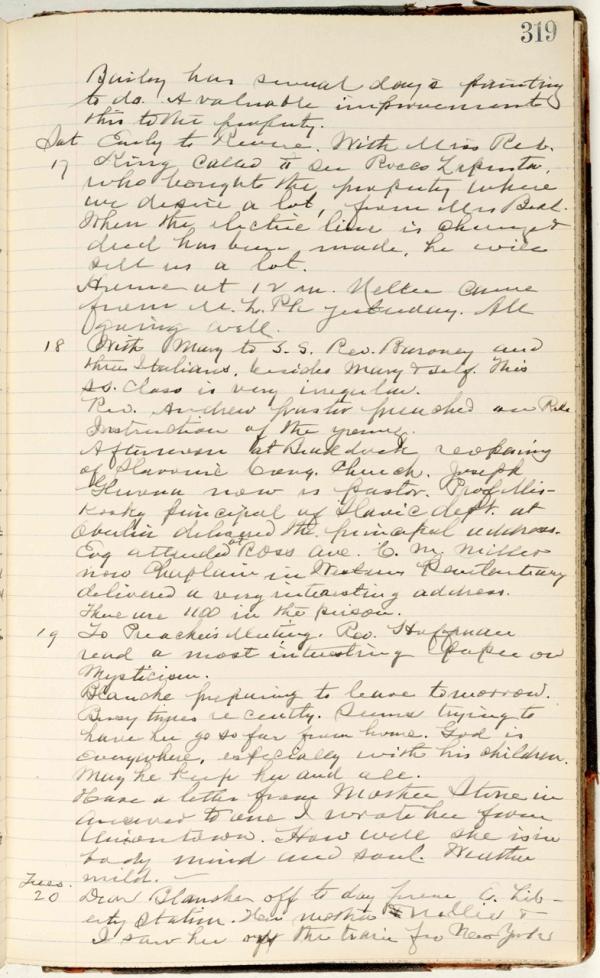 319
Bailey has several day's painting
to do. A valuable improvement
this to the property.
Sat Early to Revere. With Miss Reb.
17 King called to see Rocco
who bought the property where
we desire a lot, from Mrs Beal.
When the electric line is changed &
deed has been made, he will
sell us a lot.
Home at 12 m. Nellie came
from yesterday. All
going well.
18 With Mary to S. S. Rev. and
three Italians, besides Mary & self. This
S.S. class is very irregular.
Rev. Andrew preached on Rel.
Instruction of the young.
Afternoon at Braddock reopening
of Slavonic Cong. Church. Joseph
now is pastor. Prof Mis-
kosky principal of Slavic dept. at
Oberlin delivered the principal address.
Evg attended at Ross Ave. C. M. Miller
now Chaplain in Western Penitentiary
delivered a very interesting address.
There are 1100 in the prison.
19 To Preacher's Meeting. Rev. Huffman
read a most interesting paper on
Mysticism.
Blanche preparing to leave tomorrow.
Busy times recently. Seems trying to
have her go so far from home. God is
everywhere, especially with his children.
May he keep her and all.
Have a letter from Mother Stone in
answer to one I wrote her from
Uniontown. How well she is in
body mind and soul. Weather
mild.
Tues.
20 Dear Blanche off to day from E. Lib-
erty Station. Her mother Nellie &
I saw her off the train for New York